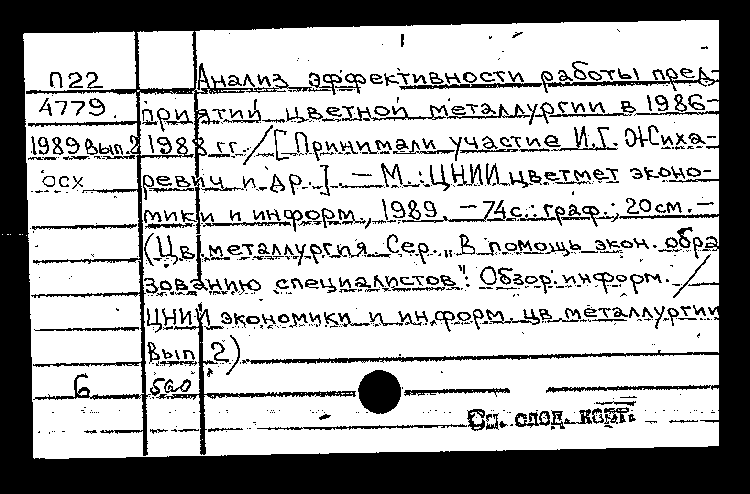 П22 Анализ эффективности работы пред-
4779. приятий цветной металлургии в 1986-
1989 вып.2 1988 гг. / [Принимали участие И.Г. Жиха-
осх ревич и др.]. - М.: ЦНИИцветмет эконо-
мики и информ., 1989. - 74с.: граф.; 20см. -
(Цв. металлургия. Сер. „В помощь экон. обра
зованию специалистов": Обзор. информ. /
ЦНИИ экономики и информ. цв. металлургии
Вып. 2)
6 560
См. след. карт.